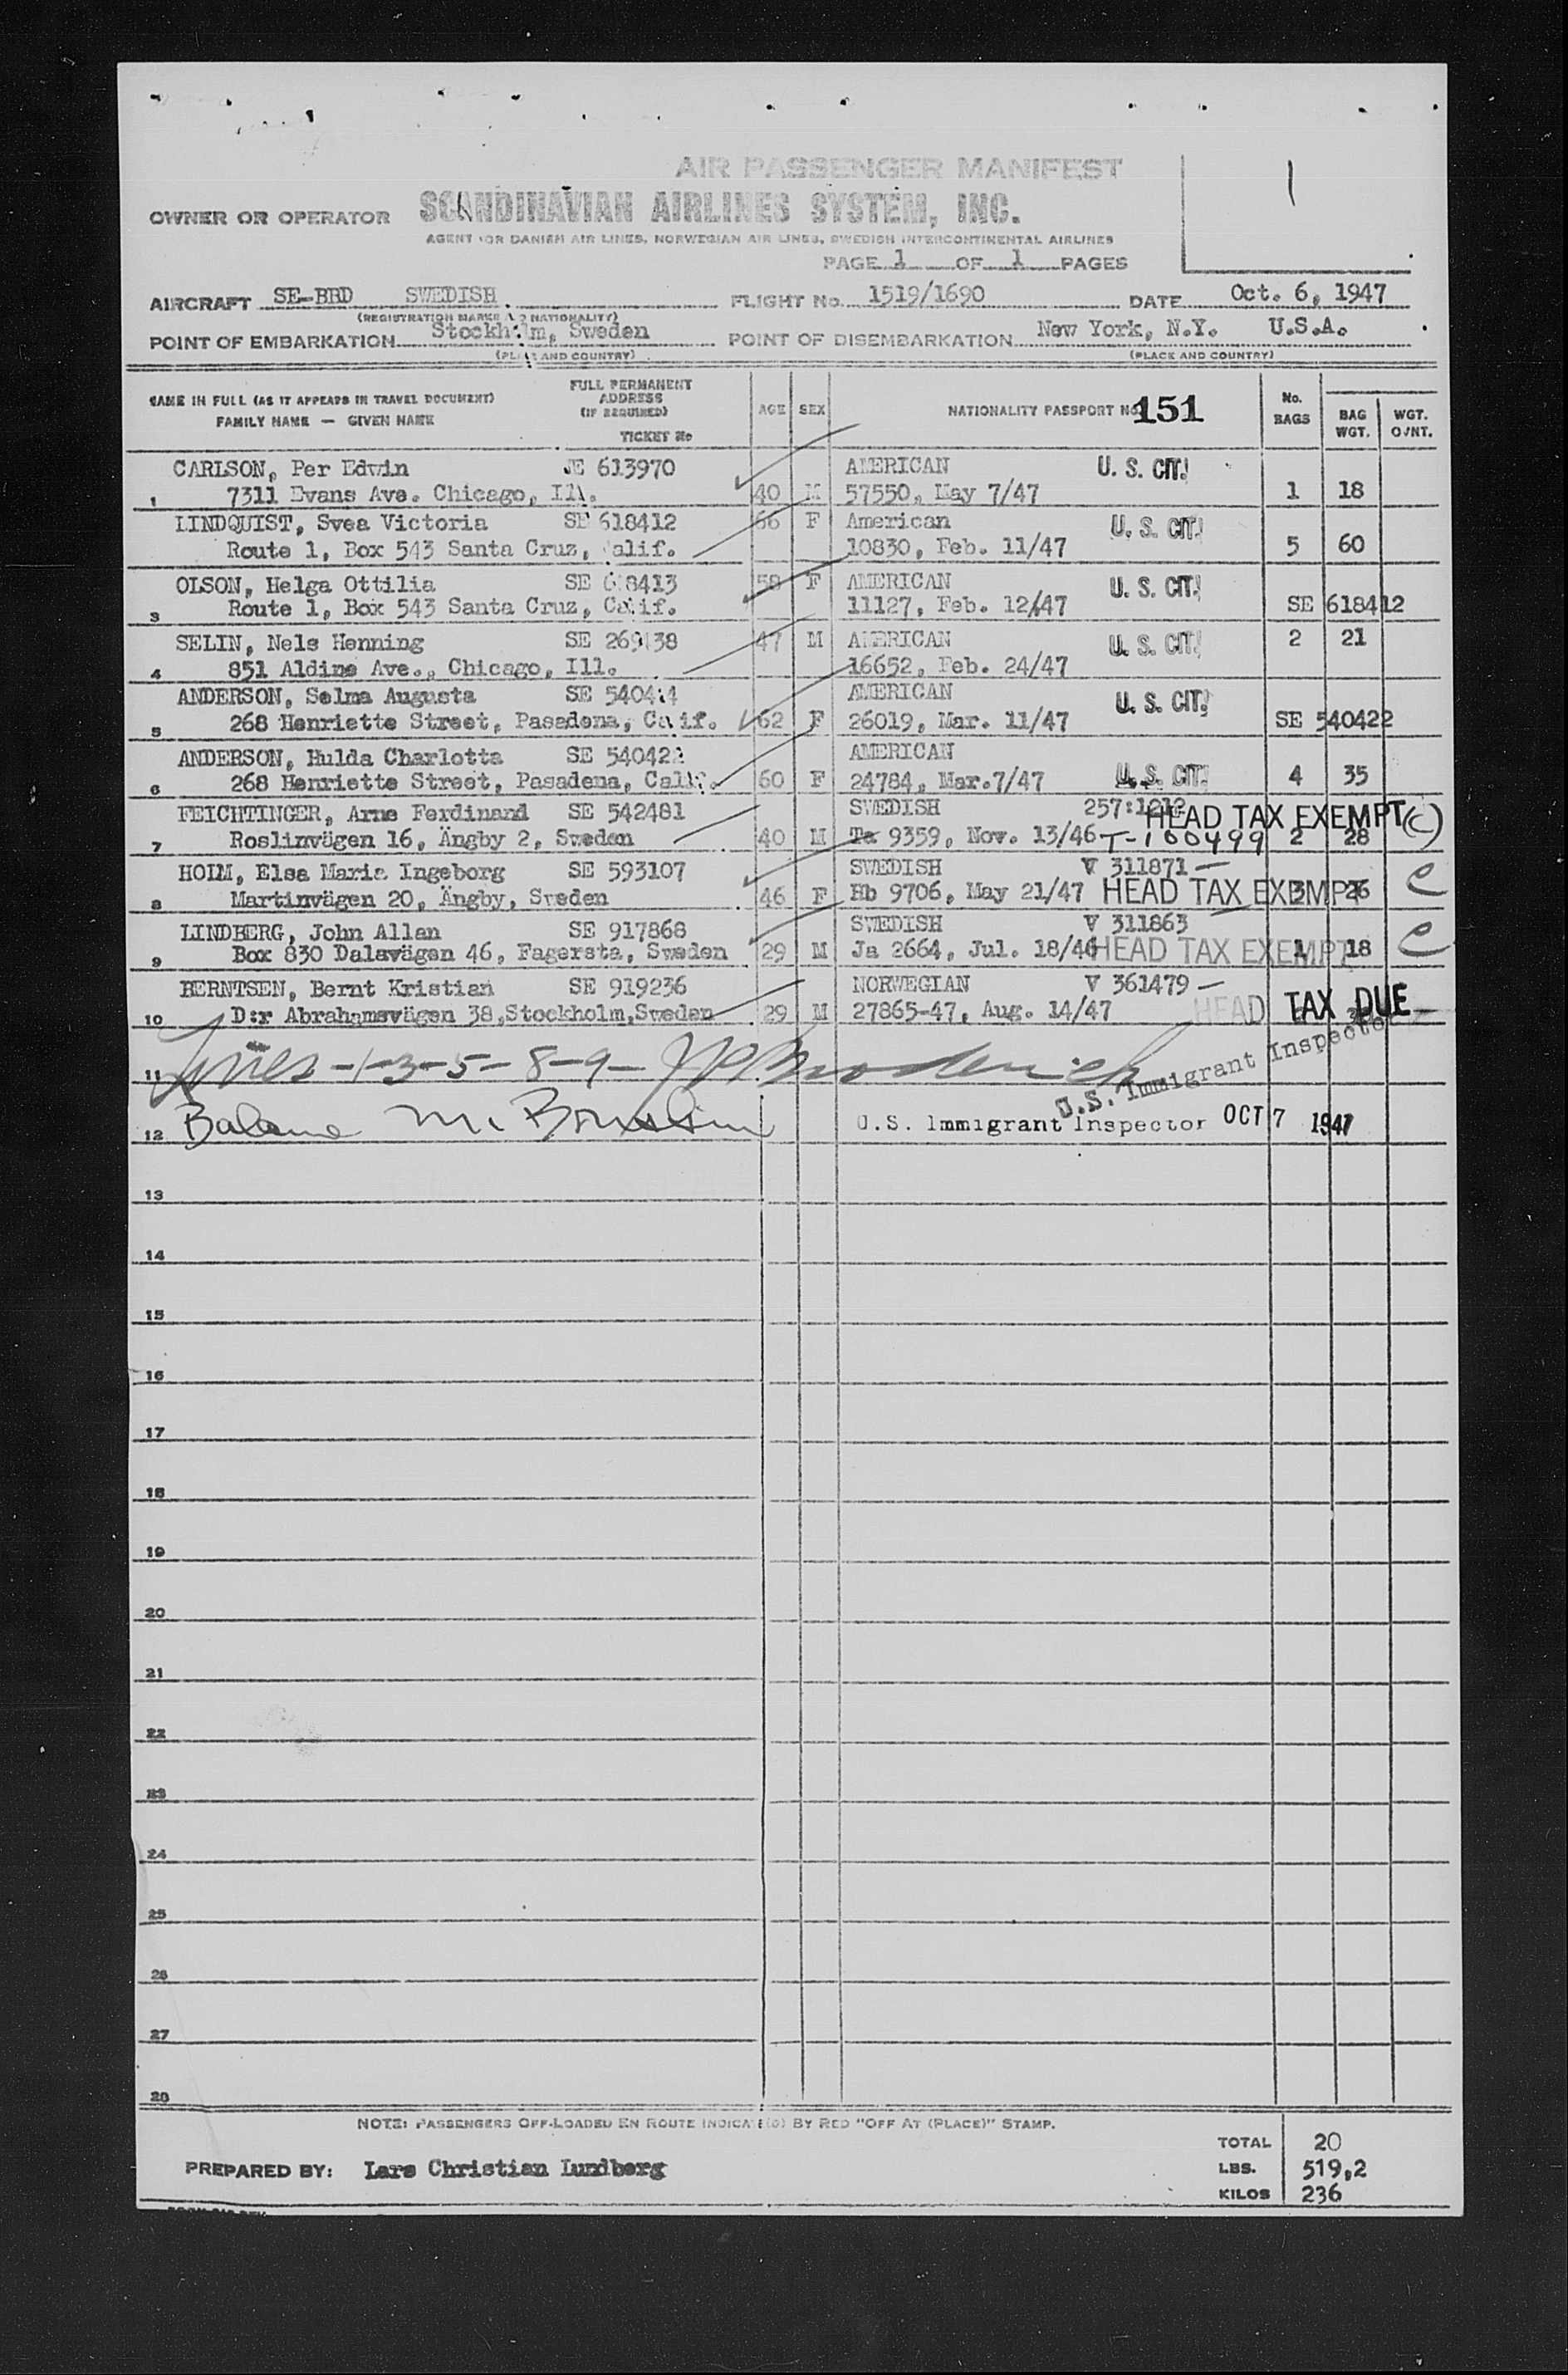 AIR PASSENGER MANIFEST
1
OWNER OR OPERATOR SCANDINAVIAN AIRLINES SYSTEM, INC.
AGENT FOR DANISH AIR LINES, NORWEGIAN AIR LINES, SWEDISH INTERCONTINENTAL AIRLINES
PAGE 1 OF 1 PAGES
AIRCRAFT SE-BBD SWEDISH FLIGHT No. 1519/1690 DATE Oct. 6, 1947
(REGISTRATION MARKS AND NATIONALITY)
POINT OF EMBARKATION Stockholm, Sweden POINT OF DISEMBARKATION New York, N.Y. U.S.A.
(PLACE AND COUNTRY) (PLACE AND COUNTRY)
NAME IN FULL (AS IT APPEARS IN TRAVEL DOCUMENT) FAMILY NAME — GIVEN NAME FULL PERMANENT ADDRESS (IF REQUIRED) TICKET No AGE SEX NATIONALITY PASSPORT No. 151 No. BAGS BAG WGT. WGT. O/NT.
CARLSON, Per Edwin JE 613970 AMERICAN U. S. CIT.
1 7311 Evans Ave. Chicago, Ill. 40 M 57550, May 7/47 1 18
LINDQUIST, Svea Victoria SE 618412 66 F American U. S. CIT.
Route 1, Box 543 Santa Cruz, Calif. 10830, Feb. 11/47 5 60
OLSON, Helga Ottilia SE 618413 58 F AMERICAN U. S. CIT.
3 Route 1, Box 543 Santa Cruz, Calif. 11127, Feb. 12/47 SE 618412
SELIN, Nels Henning SE 269138 47 M AMERICAN U. S. CIT. 2 21
4 851 Aldine Ave., Chicago, Ill. 16652, Feb. 24/47
ANDERSON, Selma Augusta SE 540414 AMERICAN U. S. CIT.
5 268 Henriette Street, Pasadena, Calif. 62 F 26019, Mar. 11/47 SE 540422
ANDERSON, Hulda Charlotta SE 540422 AMERICAN
6 268 Henriette Street, Pasadena, Calif. 60 F 24784, Mar.7/47 U. S. CIT. 4 35
FEICHTINGER, Arne Ferdinand SE 542481 SWEDISH 257:1212 HEAD TAX EXEMPT (C)
7 Roslinvägen 16, Ängby 2, Sweden 40 M Ta 9359, Nov. 13/46 T-100499 2 28
HOLM, Elsa Maria Ingeborg SE 593107 SWEDISH V 311871 — C
8 Martinvägen 20, Ängby, Sweden 46 F Hb 9706, May 21/47 HEAD TAX EXEMPT 3 26
LINDBERG, John Allan SE 917868 SWEDISH V 311863 C
9 Box 830 Dalavägen 46, Fagersta, Sweden 29 M Ja 2664, Jul. 18/46 HEAD TAX EXEMPT 1 18
BERNTSEN, Bernt Kristian SE 919236 NORWEGIAN V 361479 —
10 D:r Abrahamsvägen 38,Stockholm,Sweden 29 M 27865-47, Aug. 14/47 HEAD TAX DUE
11 Lines -1-3-5-8-9- U.S. Immigrant Inspector
12 Balance U.S. Immigrant Inspector OCT 7 1947
13
14
15
16
17
18
19
20
21
22
23
24
25
26
27
28
NOTE: PASSENGERS OFF-LOADED EN ROUTE INDICATE(D) BY RED "OFF AT (PLACE)" STAMP.
TOTAL 20
PREPARED BY: Lars Christian Lundberg LBS. 519,2
KILOS 236